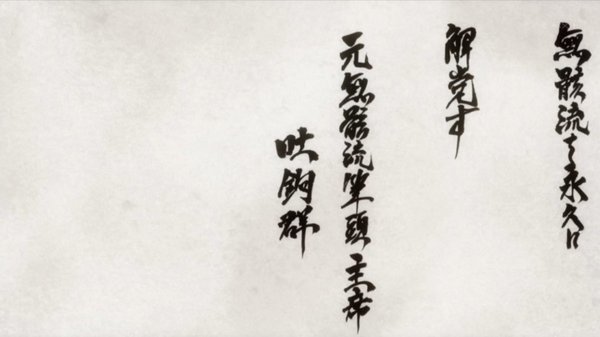 無骸流を永久に
解党す
元無骸流筆頭主席
吐鉤群